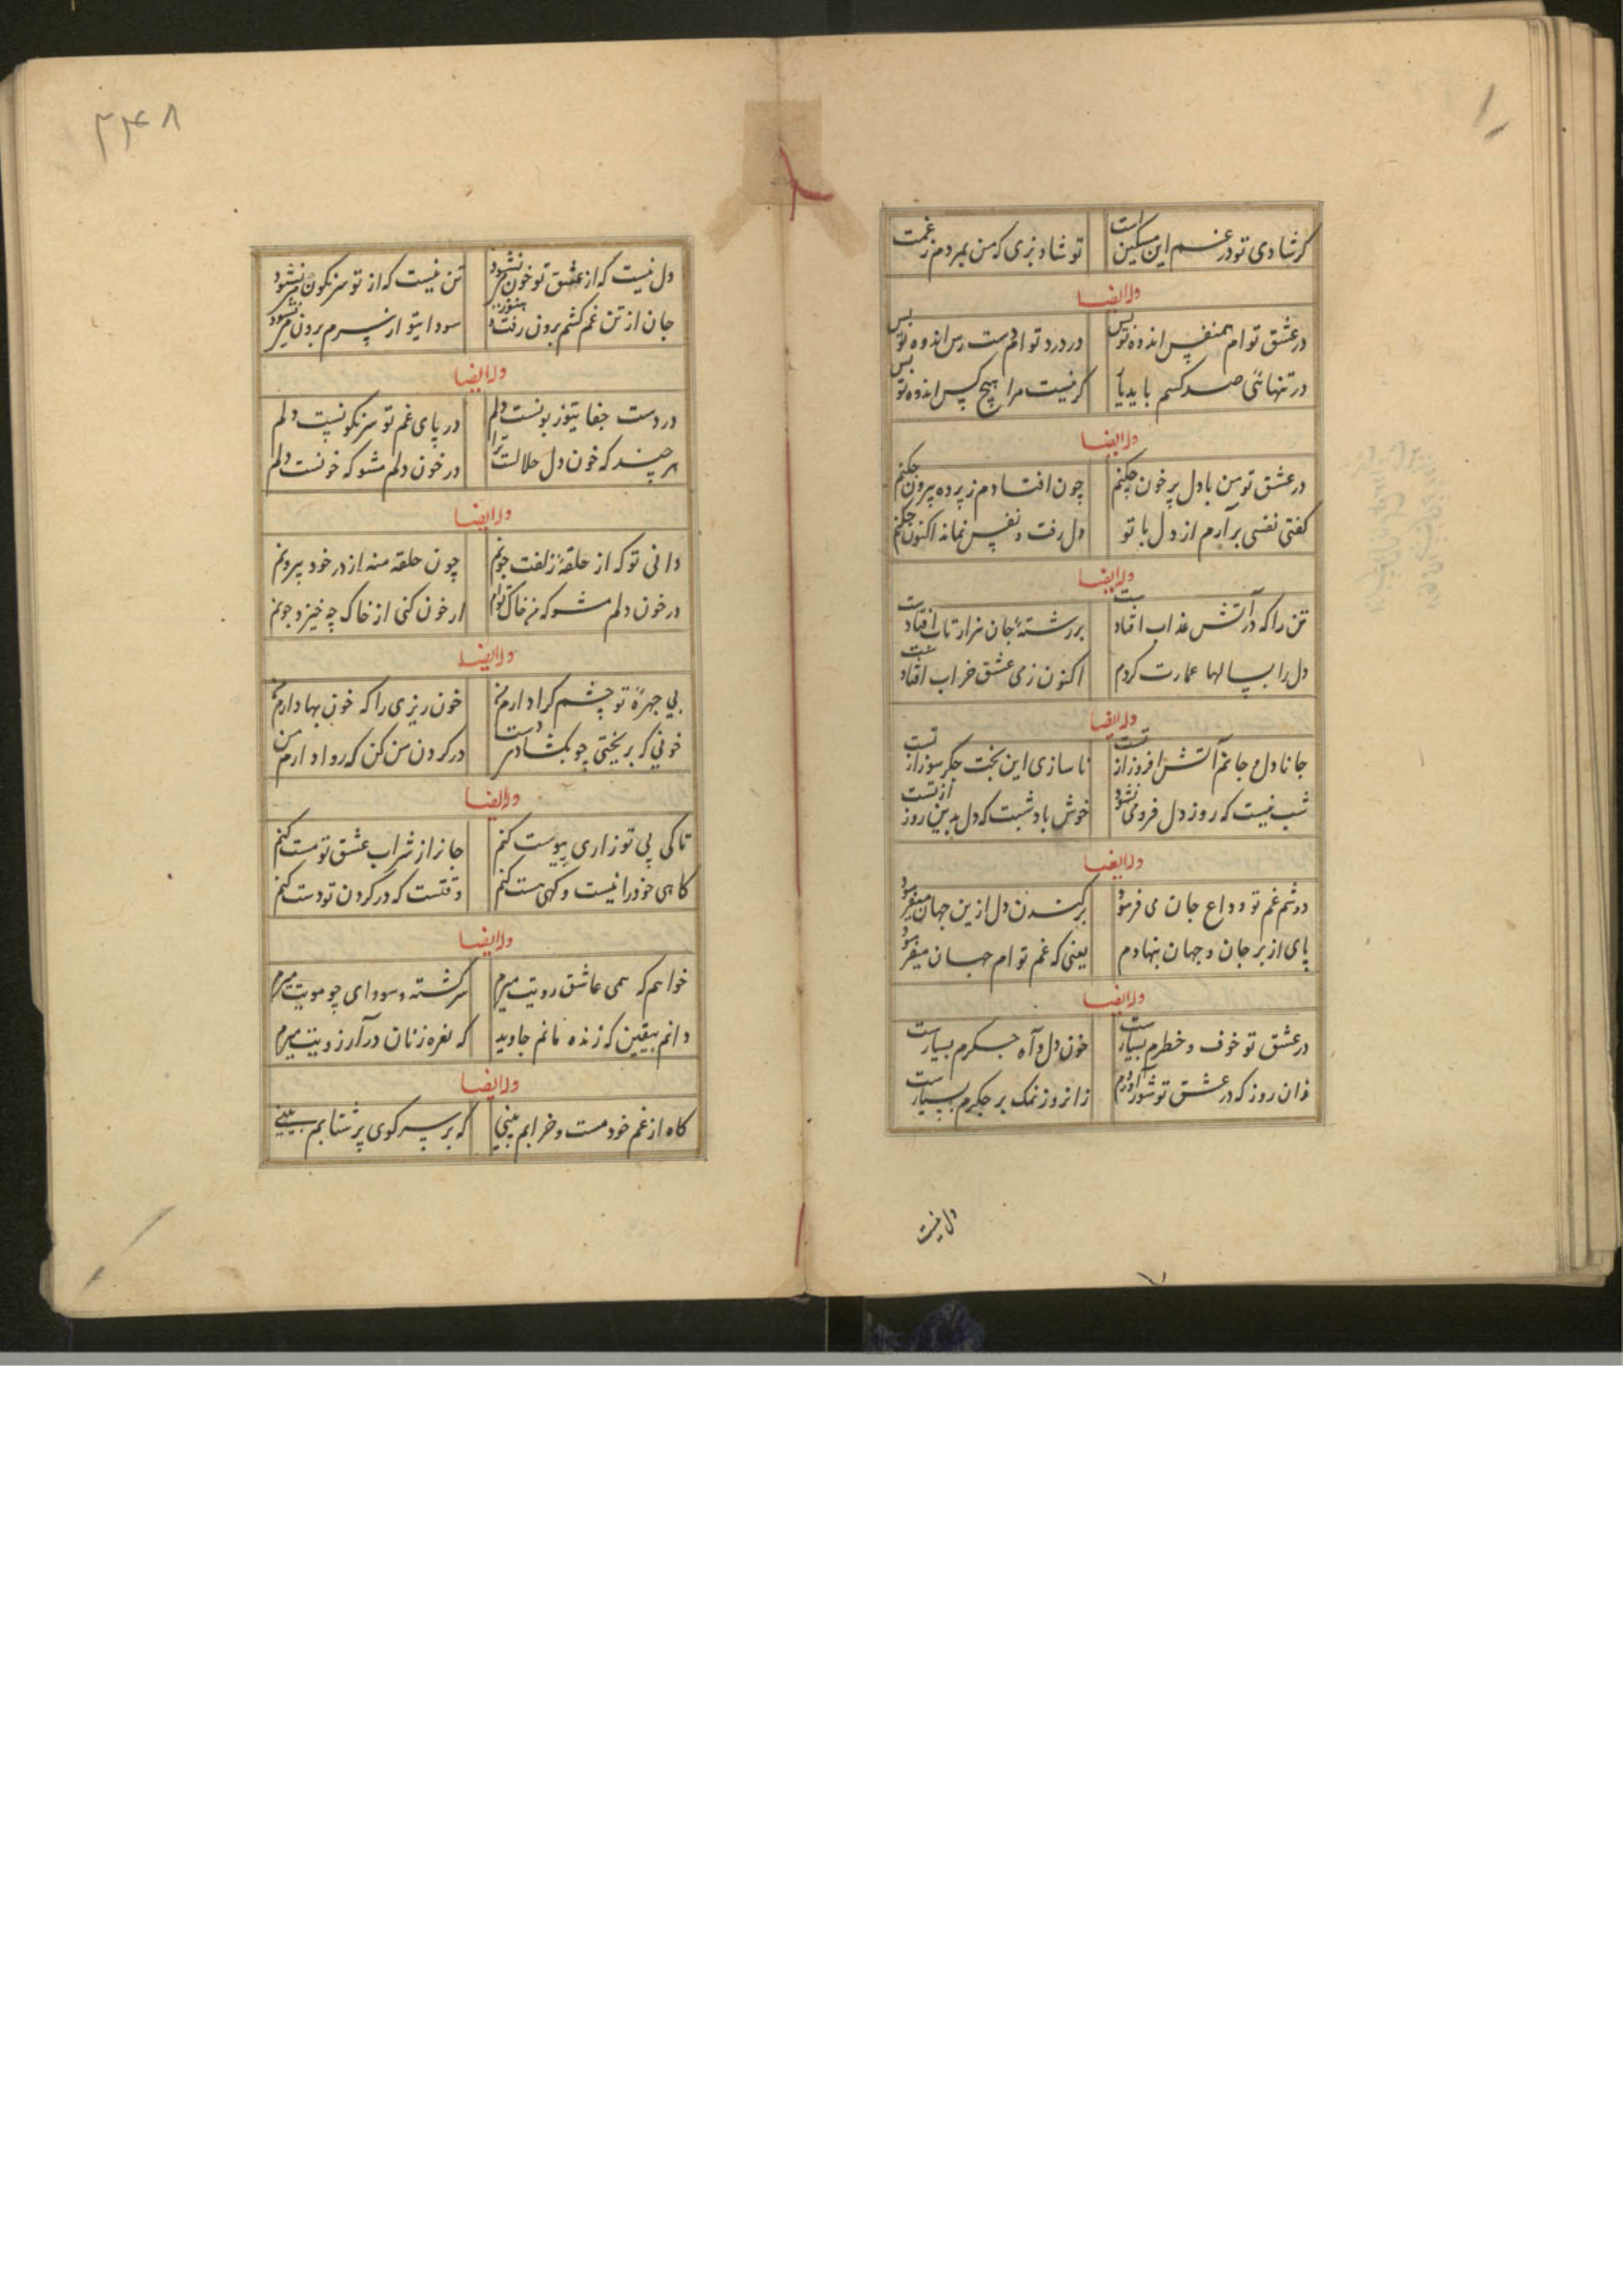 گر شادی تو در غم این مسکین است تو شاد بزی که من بمردم ز غمت
وله ایضا
در عشق توام همنفس اندوه تو بس در درد توام دست رس اندوه تو بس
در تنهائی صد کسم باید یا گر نیست مرا هیچ کس اندوه تو بس
وله ایضا
در عشق تو من با دل پر خون چکنم چون افتادم ز پرده بیرون چکنم
گفتی نفسی برآرم از دل با تو دل رفت و نفس نماند اکنون چکنم
وله ایضا
تن را که در آتش عذاب افتادست بر رشتهٔ جان هزار تاب افتادست
دل را بسالها عمارت کردم اکنون ز می عشق خراب افتاد
وله ایضا
جانا دل و جانم آتش افروز از تست ناسازی این بخت جگرسوز از تست
شب نیست که روز دل فرو می نشود خوش باد شبت که دل بدین روز از تست
وله ایضا
در غم تو وداع جان می فرمود برکندن دل ازین جهان میفرمود
پای از بر جان و جهان بنهادم یعنی که غم توام چنان میفرمود
وله ایضا
در عشق تو خوف و خطرم بسیارست خون دل و آه جگرم بسیارست
زان روز که در عشق تو شور آوردم زانروز نمک بر جگرم بسیارست
دل نیست
دل نیست که از عشق تو خون می نشود تن نیست که از تو سرنگون می نشود
جان از تن غم کشم برون رفت و هنوز سودای تو از سرم برون می نشود
وله ایضا
در دست جفای تو زبونست دلم در پای غم تو سرنگونست دلم
هر چند که خون دل حلالست ترا در خون دلم مشو که خونست دلم
وله ایضا
دانی تو که از حلقهٔ زلفت چونم چون حلقه منه از در خود بیرونم
در خون دلم مشو که من خاک توام ار خون کنی از خاک چه خیزد جز نم
وله ایضا
بی چهرهٔ تو چشم کرا دارم من خون ریزی را که خون بها دارم من
خونی که بریختی چو بگشاد دست در گردن من کن که روا دارم من
وله ایضا
تا کی پی تو زاری پیوست کنم جانرا ز شراب عشق تو مست کنم
گاهی خود را نیست و گهی هست کنم وقتست که در گردن تو دست کنم
وله ایضا
خواهم که همی عاشق رویت میرم سرگشته و سودای چو مویت میرم
دانم بیقین که زنده مانم جاوید که نعره زنان در آرزویت میرم
وله ایضا
گاه از غم خود مست و خرابم بینی گه بر سر کوی پر شتابم بینی